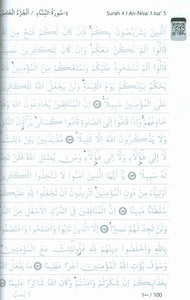 Surah 4 I An-Nisa' I Juz' 5
٤-سُورَةُ النِّسَاءِ / الْجُزْءُ الْخَامِسُ
الَّذِينَ يَتَرَبَّصُونَ بِكُمْ فَإِن كَانَ لَكُمْ فَتْحٌ مِّنَ اللَّهِ
قَالُوا أَلَمْ نَكُن مَّعَكُمْ وَإِن كَانَ لِلْكَافِرِينَ نَصِيبٌ
قَالُوا أَلَمْ نَسْتَحْوِذْ عَلَيْكُمْ وَنَمْنَعْكُم مِّنَ الْمُؤْمِنِينَ
فَاللَّهُ يَحْكُمُ بَيْنَكُمْ يَوْمَ الْقِيَامَةِ وَلَن يَجْعَلَ اللَّهُ لِلْكَافِرِينَ
عَلَى الْمُؤْمِنِينَ سَبِيلًا إِنَّ الْمُنَافِقِينَ يُخَادِعُونَ اللَّهَ
وَهُوَ خَادِعُهُمْ وَإِذَا قَامُوا إِلَى الصَّلَاةِ قَامُوا كُسَالَىٰ
يُرَاءُونَ النَّاسَ وَلَا يَذْكُرُونَ اللَّهَ إِلَّا قَلِيلًا
مُّذَبْذَبِينَ بَيْنَ ذَٰلِكَ لَا إِلَىٰ هَٰؤُلَاءِ وَلَا إِلَىٰ هَٰؤُلَاءِ
وَمَن يُضْلِلِ اللَّهُ فَلَن تَجِدَ لَهُ سَبِيلًا يَا أَيُّهَا
الَّذِينَ آمَنُوا لَا تَتَّخِذُوا الْكَافِرِينَ
أَوْلِيَاءَ مِن دُونِ الْمُؤْمِنِينَ أَتُرِيدُونَ أَن تَجْعَلُوا لِلَّهِ عَلَيْكُمْ
سُلْطَانًا مُّبِينًا إِنَّ الْمُنَافِقِينَ فِي الدَّرْكِ الْأَسْفَلِ مِنَ
النَّارِ وَلَن تَجِدَ لَهُمْ نَصِيرًا إِلَّا الَّذِينَ تَابُوا وَأَصْلَحُوا وَاعْتَصَمُوا
بِاللَّهِ وَأَخْلَصُوا دِينَهُمْ لِلَّهِ فَأُولَٰئِكَ مَعَ الْمُؤْمِنِينَ
وَسَوْفَ يُؤْتِ اللَّهُ الْمُؤْمِنِينَ أَجْرًا عَظِيمًا مَّا يَفْعَلُ اللَّهُ
بِعَذَابِكُمْ إِن شَكَرْتُمْ وَآمَنتُمْ وَكَانَ اللَّهُ شَاكِرًا عَلِيمًا
١٠٠ / 100